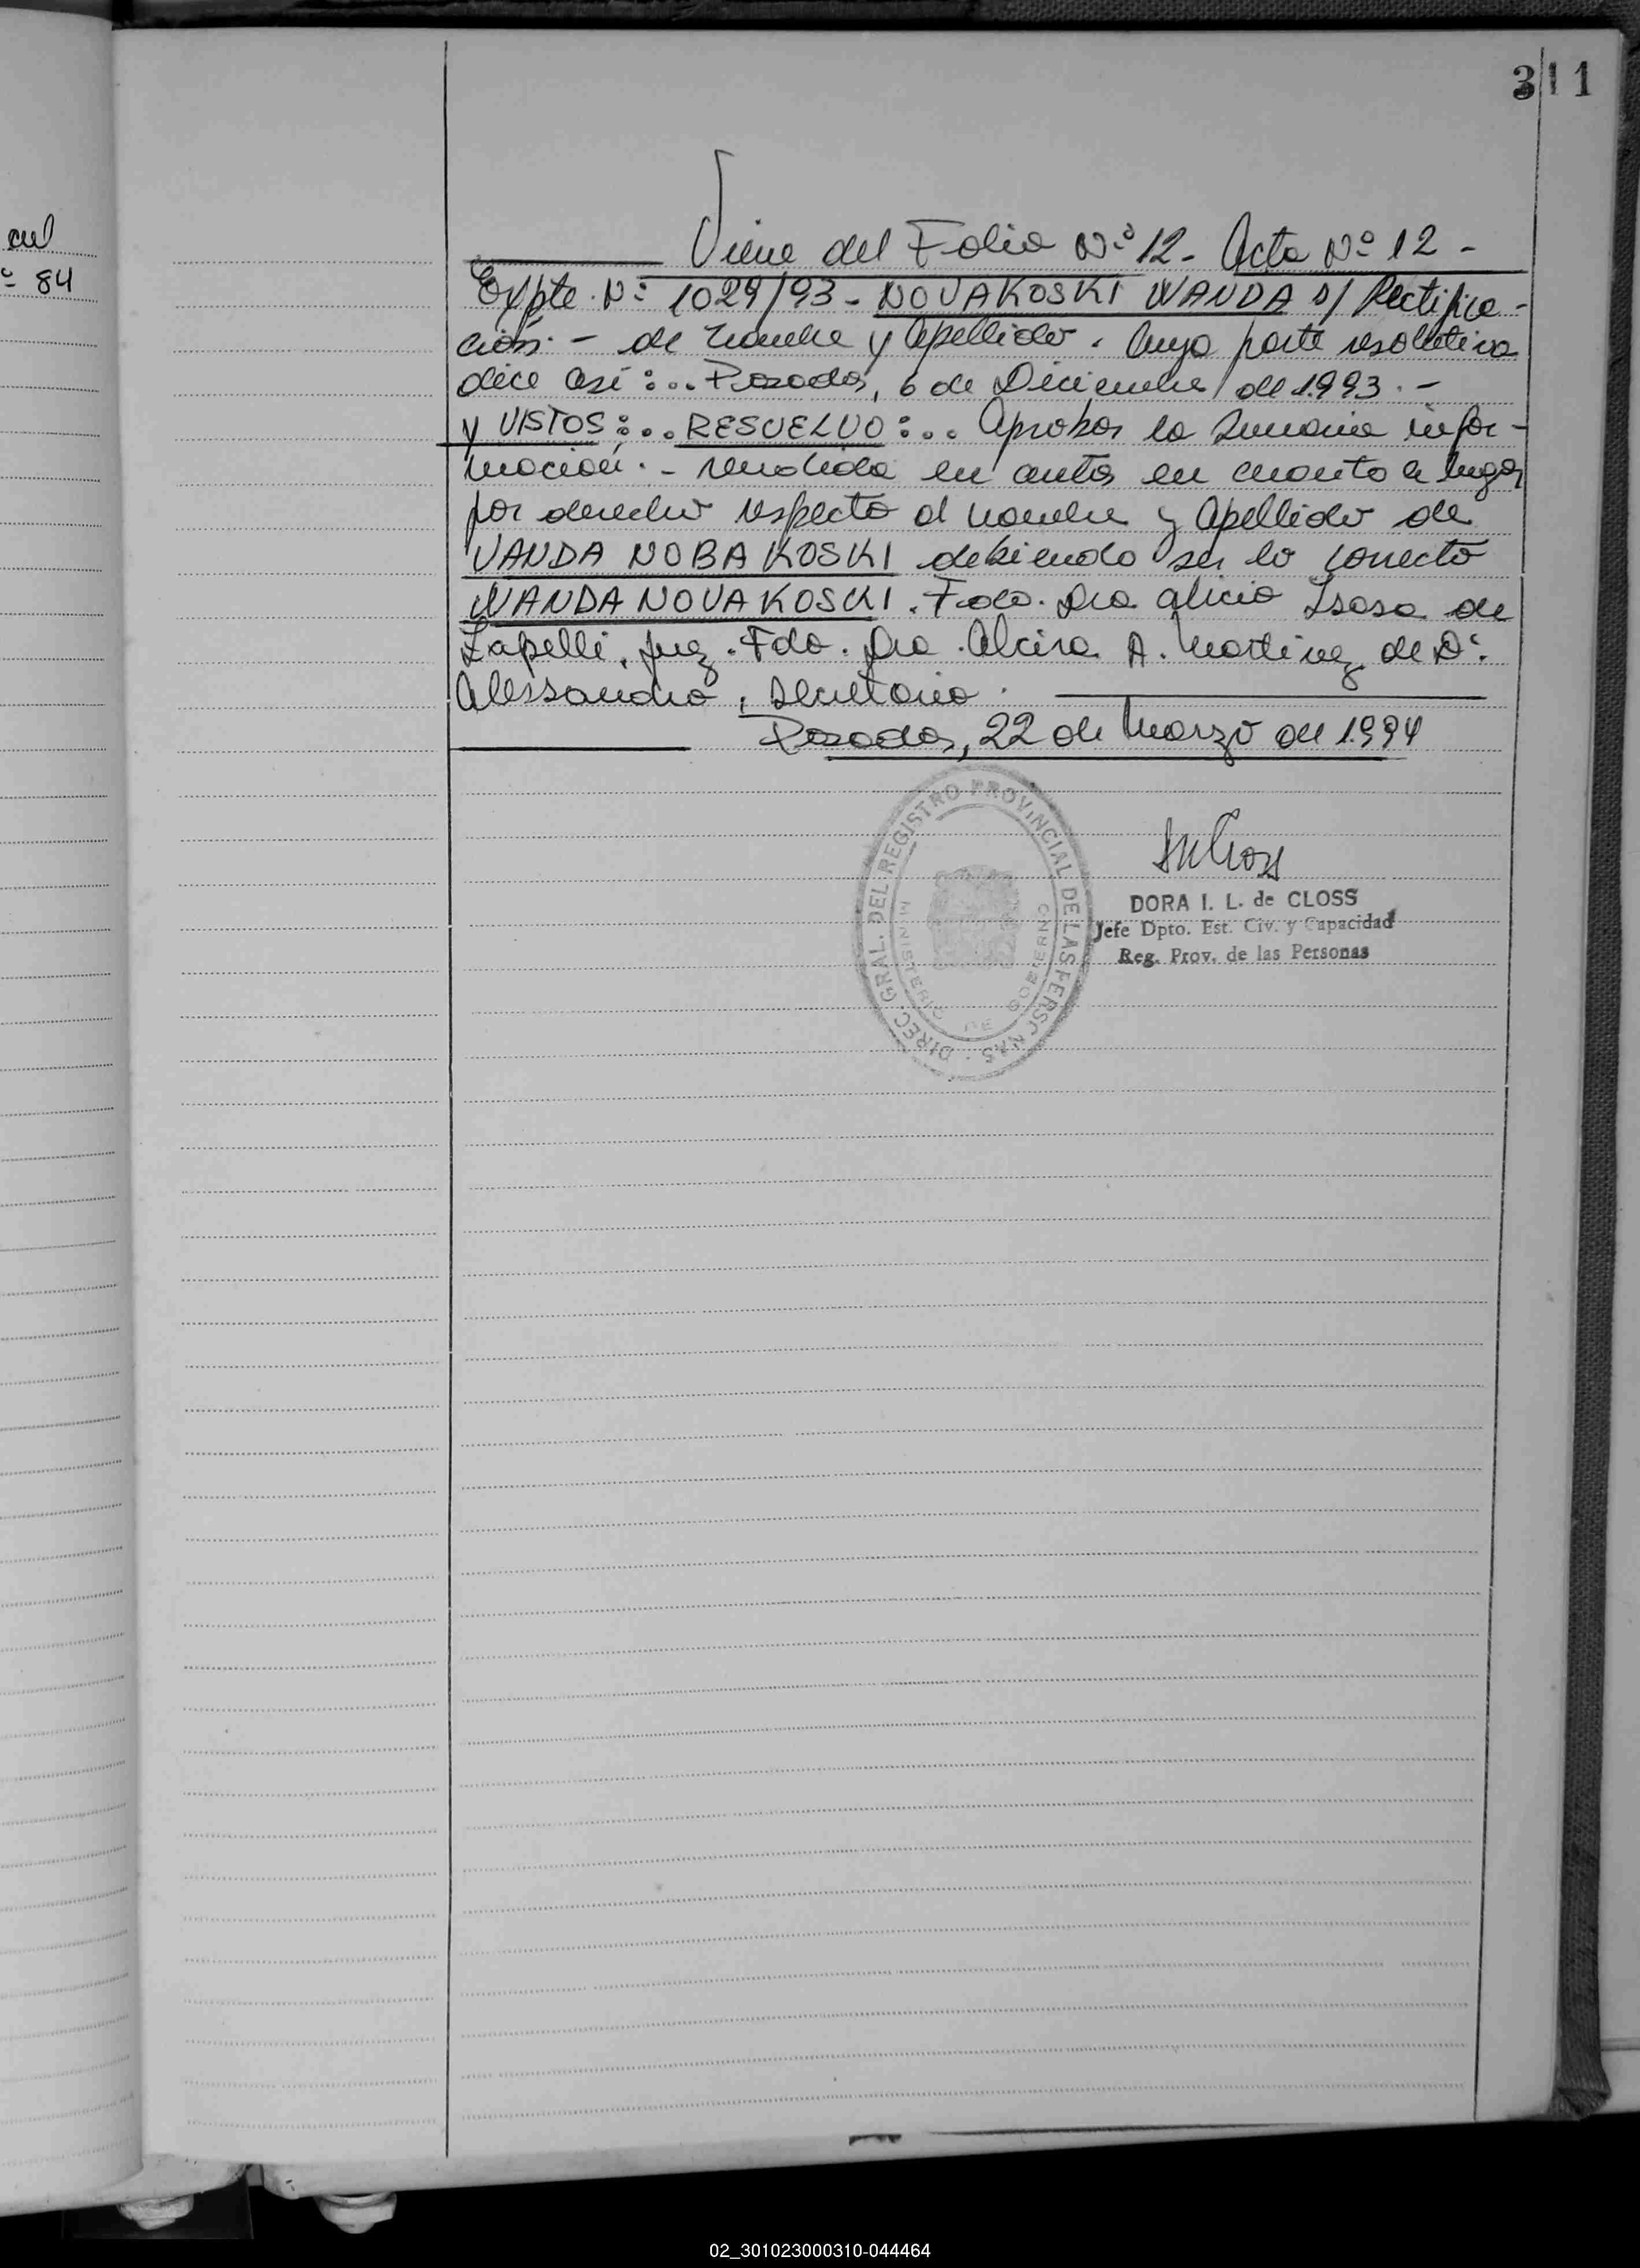 311
cul
º 84
Viene del Folio Nº 12 - Acta Nº 12 -
Expte. Nº 1029/93 - NOVAKOSKI WANDA S/ Rectifica-
ción. - de nombre y Apellido. Cuya parte resolutiva
dice así:.. Posadas, 6 de Diciembre de 1.993. -
Y VISTOS:.. RESUELVO:.. Aprobar la Sumaria infor-
mación. - rendida en autos en cuanto a lugar
por derecho respecto al nombre y Apellido de
VANDA NOBAKOSKI debiendo ser lo correcto
WANDA NOVAKOSKI. Fdo. Dra Alicia Isasa de
Zapelli, Juez. Fdo. Dra. Alcira A. Martinez de D'.
Alessandro, Secretaria.
Posadas, 22 de Marzo de 1.994
DIREC. GRAL. DEL REGISTRO PROVINCIAL DE LAS PERSONAS
MINISTERIO DE GOBIERNO
DORA I. L. de CLOSS
Jefe Dpto. Est. Civ. y Capacidad
Reg. Prov. de las Personas
02_301023000310-044464